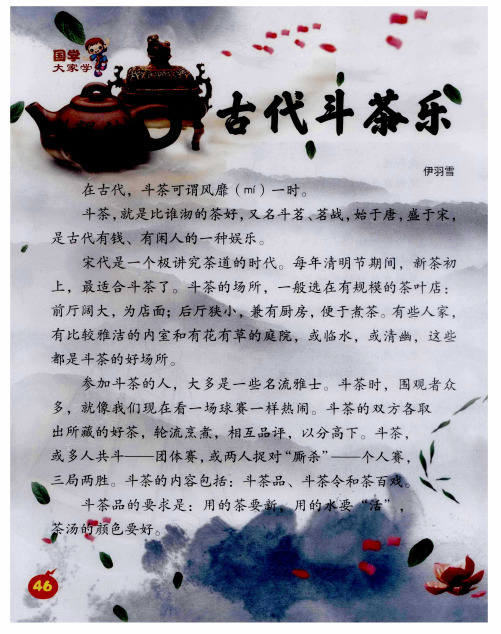 国学
大家学
古代斗茶乐
伊羽雪
在古代，斗茶可谓风靡（mí）一时。
斗茶，就是比谁沏的茶好，又名斗茗、茗战，始于唐，盛于宋，
是古代有钱、有闲人的一种娱乐。
宋代是一个极讲究茶道的时代。每年清明节期间，新茶初
上，最适合斗茶了。斗茶的场所，一般选在有规模的茶叶店：
前厅阔大，为店面；后厅狭小，兼有厨房，便于煮茶。有些人家，
有比较雅洁的内室和有花有草的庭院，或临水，或清幽，这些
都是斗茶的好场所。
参加斗茶的人，大多是一些名流雅士。斗茶时，围观者众
多，就像我们现在看一场球赛一样热闹。斗茶的双方各取
出所藏的好茶，轮流烹煮，相互品评，以分高下。斗茶，
或多人共斗——团体赛，或两人捉对“厮杀”——个人赛，
三局两胜。斗茶的内容包括：斗茶品、斗茶令和茶百戏。
斗茶品的要求是：用的茶要新，用的水要“活”，
茶汤的颜色要好。
46